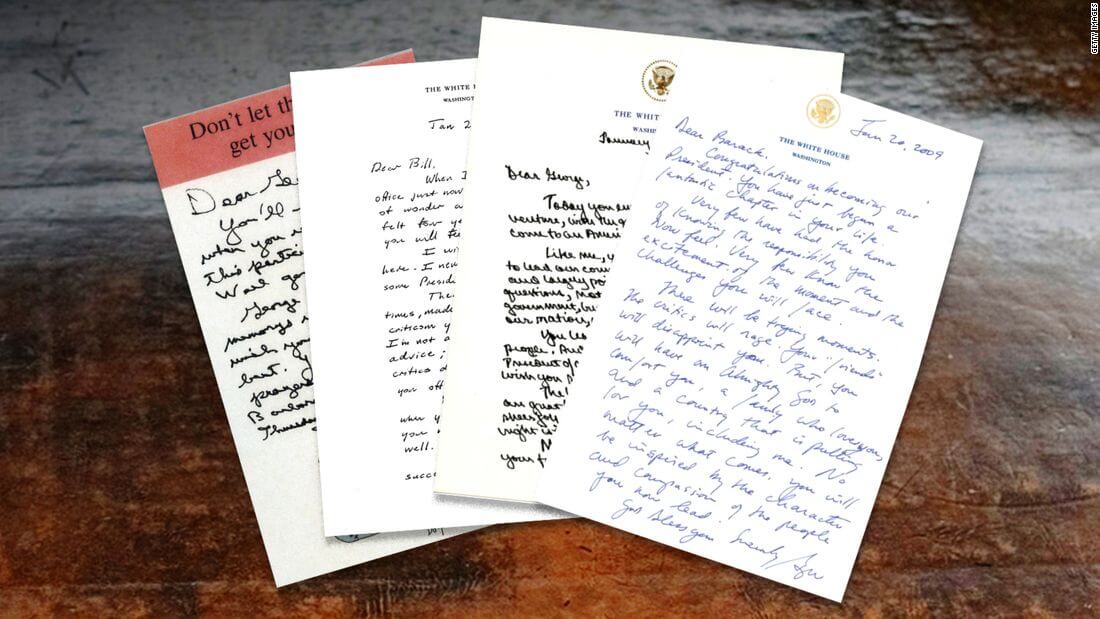 Don't let th
get you
Dear Ge
You'll
when you
This partic
Wall go
George
memorys
wish you
best.
prayers
Thursday
THE WHITE H
WASHINGTO
Jan 2
Dear Bill,
When I
office just now
of wonder a
felt for ye
you will fee
I wi
here. I nev
some Presid
The
times, made
criticism y
I'm not a
advice;
critics d
you off
when y
you
well.
succ
THE WHIT
WASHI
January
Dear George,
Today you
venture, with the
come to an Ameri
Like me, y
to lead our coun
and largely po
questions, not
government, bu
our nation,
You le
people, An
President of
wish you
The
are great
sheer jo
right is
N
your f
THE WHITE HOUSE
WASHINGTON
Jan 20, 2009
Dear Barack,
Congratulations on becoming our
President. You have just begun a
fantastic chapter in your life.
Very few have had the honor
of knowing the responsibility you
now feel. Very few know the
excitement of the moment and the
challenges you will face.
There will be trying moments.
The critics will rage. Your "friends"
will disappoint you. But, you
will have an Almighty God to
comfort you, a family who loves you,
and a country that is pulling
for you, including me. No
matter what comes, you will
be inspired by the character
and compassion of the people
you now lead.
God bless you.
Sincerely,
GETTY IMAGES